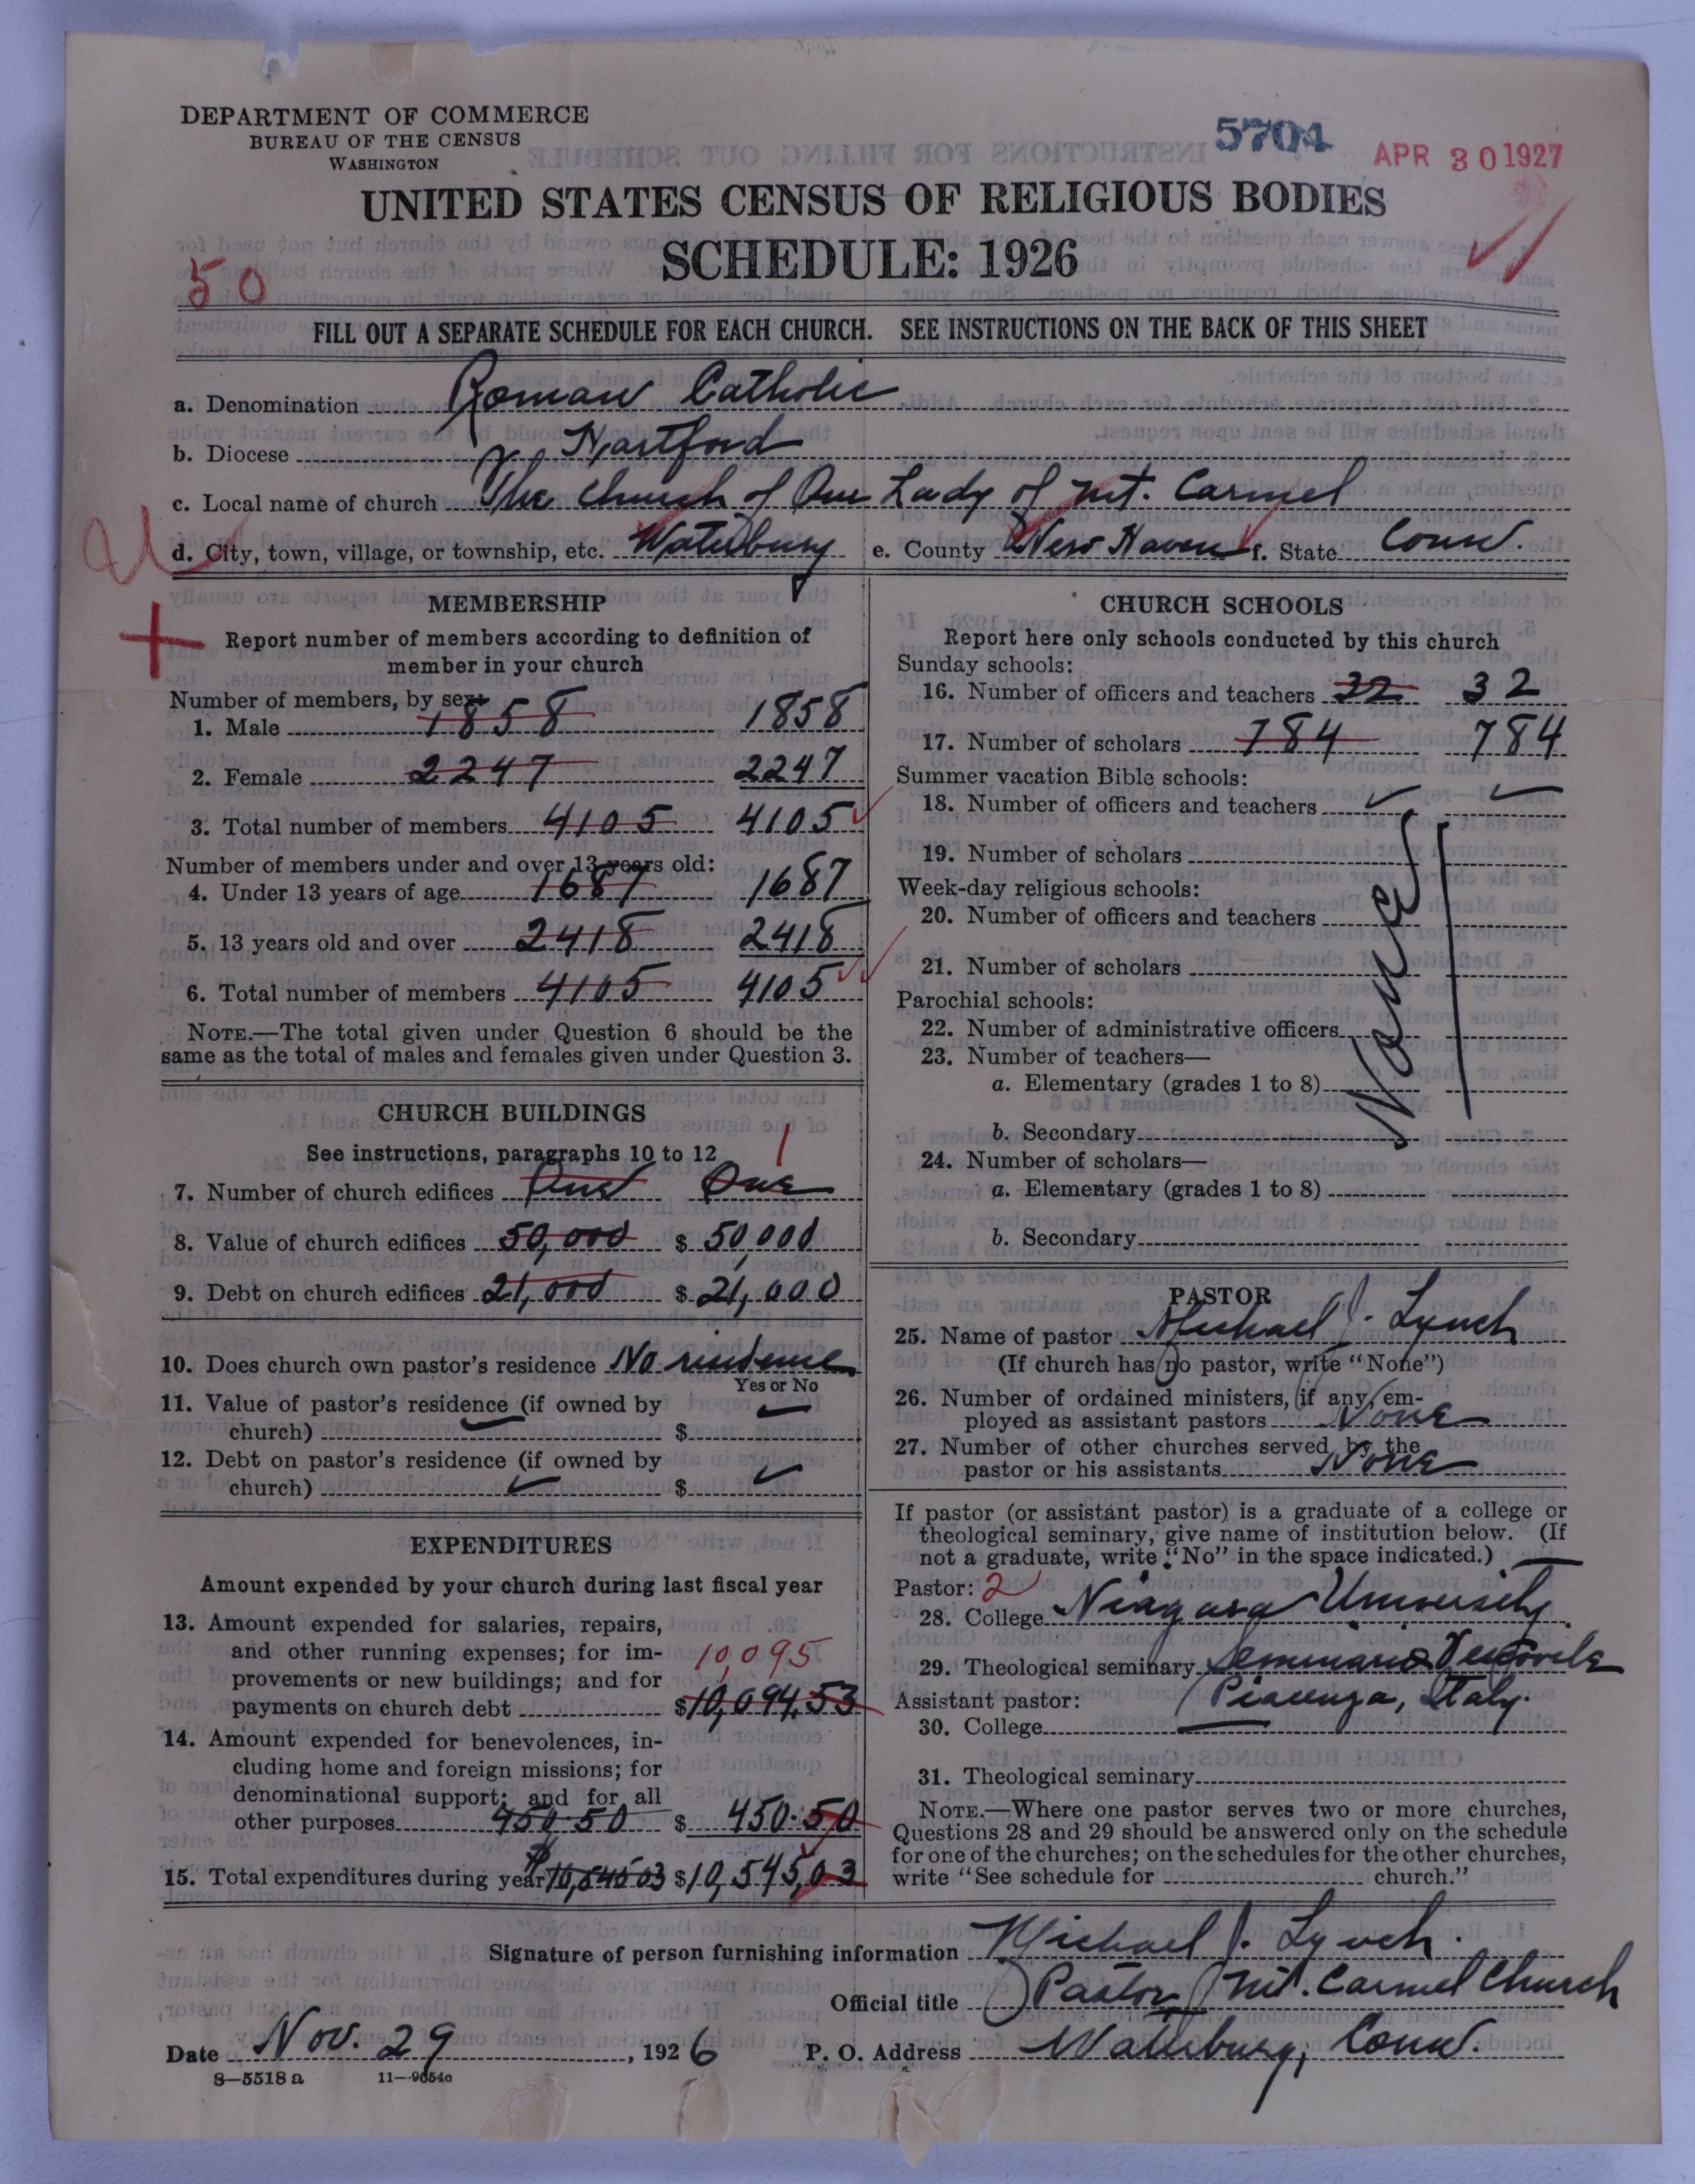 DEPARTMENT OF COMMERCE
BUREAU OF THE CENSUS
WASHINGTON
5704
APR 30 1927
UNITED STATES CENSUS OF RELIGIOUS BODIES
SCHEDULE: 1926
50
FILL OUT A SEPARATE SCHEDULE FOR EACH CHURCH. SEE INSTRUCTIONS ON THE BACK OF THIS SHEET
a. Denomination Roman Catholic
b. Diocese Hartford
c. Local name of church The Church of Our Lady of Mt. Carmel
d. City, town, village, or township, etc. Waterbury e. County New Haven f. State Conn.
MEMBERSHIP
Report number of members according to definition of
member in your church
Number of members, by sex:
1. Male 1858 1858
2. Female 2247 2247
3. Total number of members 4105 4105
Number of members under and over 13 years old:
4. Under 13 years of age 1687 1687
5. 13 years old and over 2418 2418
6. Total number of members 4105 4105
NOTE.—The total given under Question 6 should be the
same as the total of males and females given under Question 3.
CHURCH BUILDINGS
See instructions, paragraphs 10 to 12
1
7. Number of church edifices One One
8. Value of church edifices 50,000 $ 50,000
9. Debt on church edifices 21,000 $ 21,000
10. Does church own pastor's residence No residence
Yes or No
11. Value of pastor's residence (if owned by
church) $
12. Debt on pastor's residence (if owned by
church) $
EXPENDITURES
Amount expended by your church during last fiscal year
13. Amount expended for salaries, repairs,
and other running expenses; for im-
provements or new buildings; and for
10,095
payments on church debt $10,094.53
14. Amount expended for benevolences, in-
cluding home and foreign missions; for
denominational support; and for all
other purposes 450.50 $ 450.50
15. Total expenditures during year $10,545.03 $10,545,03
CHURCH SCHOOLS
Report here only schools conducted by this church
Sunday schools:
16. Number of officers and teachers 32 32
17. Number of scholars 784 784
Summer vacation Bible schools:
18. Number of officers and teachers
19. Number of scholars
Week-day religious schools:
20. Number of officers and teachers
21. Number of scholars
Parochial schools:
22. Number of administrative officers
23. Number of teachers—
a. Elementary (grades 1 to 8)
b. Secondary
24. Number of scholars—
a. Elementary (grades 1 to 8)
b. Secondary
PASTOR
25. Name of pastor Michael J. Lynch
(If church has no pastor, write "None")
26. Number of ordained ministers, if any, em-
ployed as assistant pastors None
27. Number of other churches served by the
pastor or his assistants None
If pastor (or assistant pastor) is a graduate of a college or
theological seminary, give name of institution below. (If
not a graduate, write "No" in the space indicated.)
Pastor: 2
28. College Niagara University
29. Theological seminary Seminario
Assistant pastor: Piacenza, Italy.
30. College
31. Theological seminary
NOTE.—Where one pastor serves two or more churches,
Questions 28 and 29 should be answered only on the schedule
for one of the churches; on the schedules for the other churches,
write "See schedule for church."
Signature of person furnishing information Michael J. Lynch.
Official title Pastor Mt. Carmel Church
Date Nov. 29, 1926 P. O. Address Waterbury, Conn.
8—5518a 11—9654c